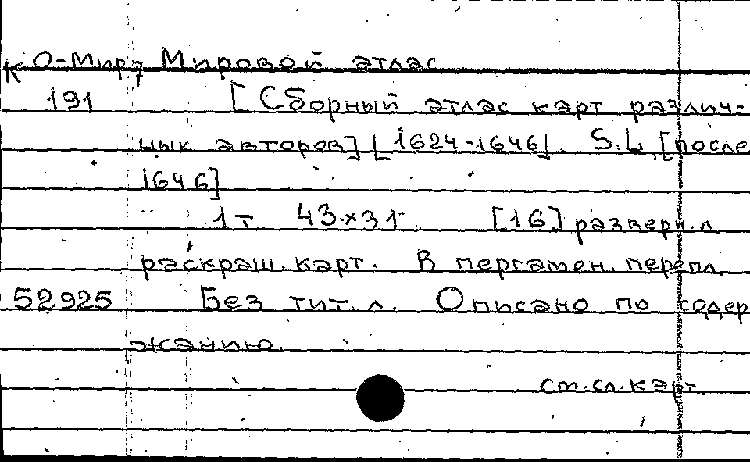 К О-Мир, Мировой атлас
191 [Сборный атлас карт различ-
ных авторов] [1624-1646]. S.L. [после
1646]
1 т 43×31 [16] разверн. л
раскраш. карт. В пергамен. перепл.
52925 Без тит. л. Описано по содер
жанию.
см. сл. карт.